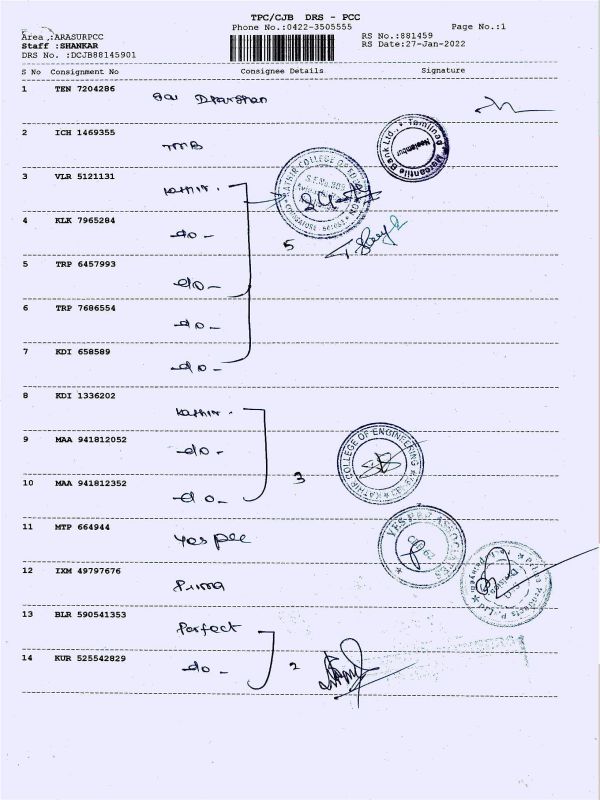 TPC/CJB DRS - PCC
Phone No.:0422-3505555 Page No.:1
Area :ARASURPCC RS No.:881459
Staff :SHANKAR RS Date:27-Jan-2022
DRS No. :DCJB88145901
S No Consignment No Consignee Details Signature
1 TEN 7204286 Sai Dharshan
2 ICH 1469355 TMB
Tamilnad Mercantile Bank Ltd.,
Neelambur
3 VLR 5121131 Kathir.
4 KLK 7965284 -do-
5
5 TRP 6457993 -do-
6 TRP 7686554 -do-
7 KDI 658589 -do-
8 KDI 1336202 Kathir.
9 MAA 941812052 -do-
KATHIR COLLEGE OF ENGINEERING
10 MAA 941812352 -do- 3
11 MTP 664944 Yes pee
YES PEE ASSOCIATES
12 IXM 49797676 Prima
13 BLR 590541353 Perfect
14 KUR 525542829 -do- 2